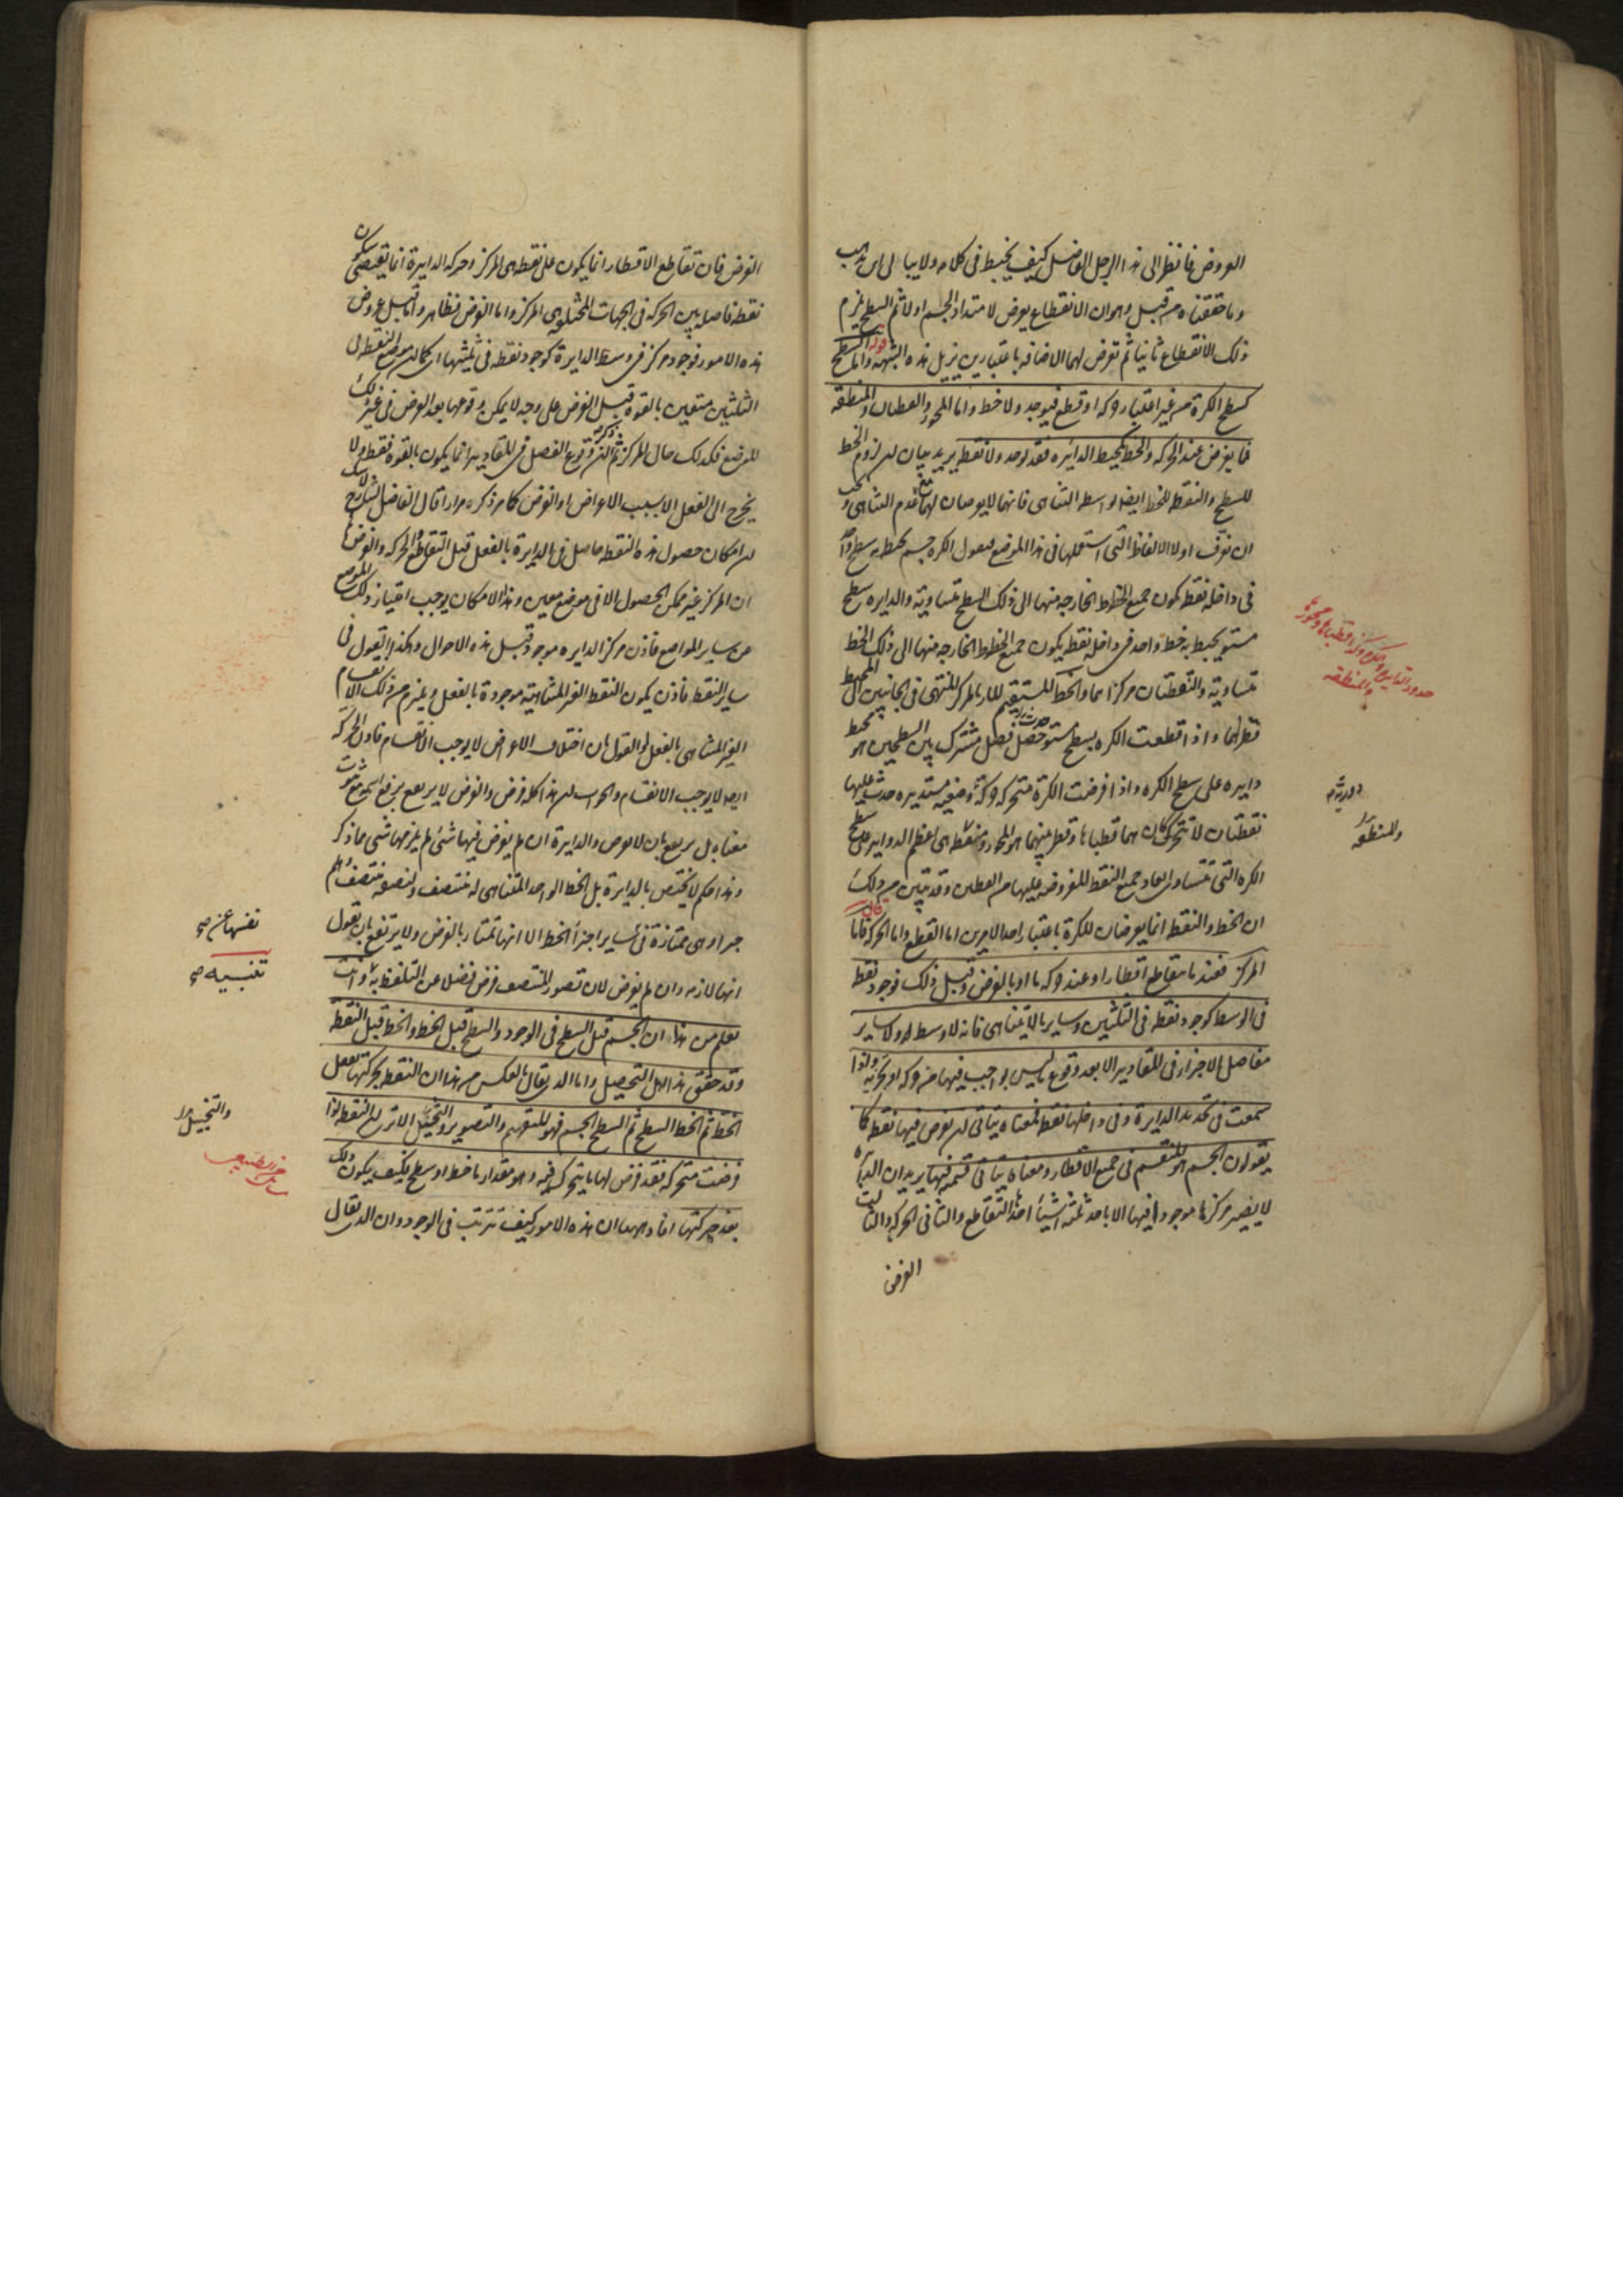 العروض فانظر الى هذا الرجل الفاضل كيف يخبط في كلامه ولا يبالي اين يذهب
وما حققناه من قبل وهو ان الانقطاع يعرض لامتداد الجسم اولا ثم السطح يلزم
ذلك الانقطاع ثانيا ثم تعرض لهما الاضافة باعتبارين يزيل هذه الشبهة قوله واما السطح
كسطح الكرة من غير اعتبار حركة او قطع فيوجد ولا خط واما المحور والقطبان والمنطقة
فما يفرض عند الحركة والخط كمحيط الدائرة فقد يوجد ولا نقطة يريد بيان ان لزوم الخط
للسطح والنقطة للخط ايضا بواسطة التناهي فانهما لا يعرضان لهما مع عدم التناهي ويجب
ان نعرف اولا الالفاظ التي استعملها في هذا الموضع فنقول الكرة جسم يحيط به سطح واحد
في داخله نقطة تكون جميع الخطوط الخارجة منها الى ذلك السطح متساوية والدايرة سطح
مستو يحيط به خط واحد في داخله نقطة يكون جميع الخطوط الخارجة منها الى ذلك الخط
متساوية والنقطتان مركزاهما والخط المستقيم المار بالمركز المنتهي في الجانبين الى المحيط
قطرهما واذا قطعت الكرة بسطح مستو حصل فصل مشترك بين السطحين هو محيط
دايرة على سطح الكرة واذا فرضت الكرة متحركة حركة وضعية مستديرة حدث عليها
نقطتان لا تتحركان هما قطباها وقطر بينهما هو المحور ومنطقة هي اعظم الدواير على سطح
الكرة التي تتساوى ابعاد جميع النقط المفروضة عليها من القطبين وقد تبين من ذلك
ان الخط والنقطة انما يعرضان للكرة باعتبار احد الامرين اما القطع واما الحركة قال واما
المركز فعند ما يتقاطع اقطار او عند حركة ما او بالفرض وقبل ذلك فوجود نقطة
في الوسط كوجود نقطة في الثلثين وساير ما لا يتناهى فانه لا وسط له ولا ساير
مفاصل الاجزاء في المقادير الا بعد وقوع ما ليس بواجب فيها من حركة او تجزية واذا
سمعت في تحديد الدايرة وفي داخلها نقطة فمعناه يتاتى ان يفرض فيها نقطة كما
يقولون الجسم هو المنقسم في جميع الاقطار ومعناه يتاتى قسمته فيها يريد ان الدايرة
لا يصير مركزها موجودا فيها الا باحد ثلثة اشياء احدها التقاطع والثاني الحركة والثالث
الفرض
حدود الدايرة والكرة ومركز اقطبها ومحورها
والمنطقة
والمنطقة
الفرض فان تقاطع الاقطار انما يكون على نقطة هي المركز وحركة الدايرة انما يقتضي سكون
نقطة فاصلة بين الحركة في الجهات المختلفة هي المركز واما الفرض فظاهر واما قبل عروض
هذه الامور فوجود مركز في وسط الدايرة كوجود نقطة في ثلثيها اي كما ان موضع النقطة في
الثلثين متعين بالقوة قبل الفرض على وجه لا يمكن وقوعها بعد الفرض في غير ذلك
الموضع فكذلك حال المركز ثم ذكر ان وقوع الفصل في المقادير انما يكون بالقوة فقط ولا
يخرج الى الفعل الا بسبب الاعراض او الفرض كما مر ذكره مرارا قال الفاضل الشارح
ان امكان حصول هذه النقطة حاصل في الدايرة بالفعل قبل التقاطع والحركة والفرض
ان المركز غير ممكن الحصول الا في موضع معين وهذا الامكان يوجب امتياز ذلك الموضع
عن ساير المواضع فاذن مركز الدايرة موجود قبل هذه الاحوال وهكذا القول في
ساير النقط فاذن يكون النقط الغير المتناهية موجودة بالفعل ويلزم من ذلك الانقسام
الغير المتناهي بالفعل او القول بان اختلاف الاعراض لا يوجب الانقسام فاذن الحركة
ايضا لا يوجب الانقسام والجواب ان هذا كله فرض والفرض لا يرتفع برفع اسمه مع ثبوت
معناه بل يرتفع بان لا يفرض والدايرة ان لم يفرض فيها شيء لم يلزمها شيء مما ذكر
وهذا حكم لا يختص بالدايرة بل الخط الواحد المتناهي له منتصف ولنصفه منتصف وهلم
جرا وهي ممتازة عن ساير اجزاء الخط الا انها تمتاز بالفرض ولا يرتفع بان يقول
انها لازمة وان لم يفرض لان تصور المنتصف فرض فضلا عن التلفظ به وانت
تعلم من هذا ان الجسم قبل السطح في الوجود والسطح قبل الخط والخط قبل النقطة
وقد حقق هذا اهل التحصيل واما الذي يقال بالعكس من هذا ان النقطة بحركتها تفعل
الخط ثم الخط السطح ثم السطح الجسم فهو للتفهيم والتصوير والتخييل الا ترى ان النقطة اذا
فرضت متحركة فقد فرض لها ما يتحرك فيه وهو مقدار ما خط او سطح فكيف يكون ذلك
بعد حركتها افاد بيان ان هذه الامور كيف تترتب في الوجود وان الذي يقال
تنبيه
والتخييل